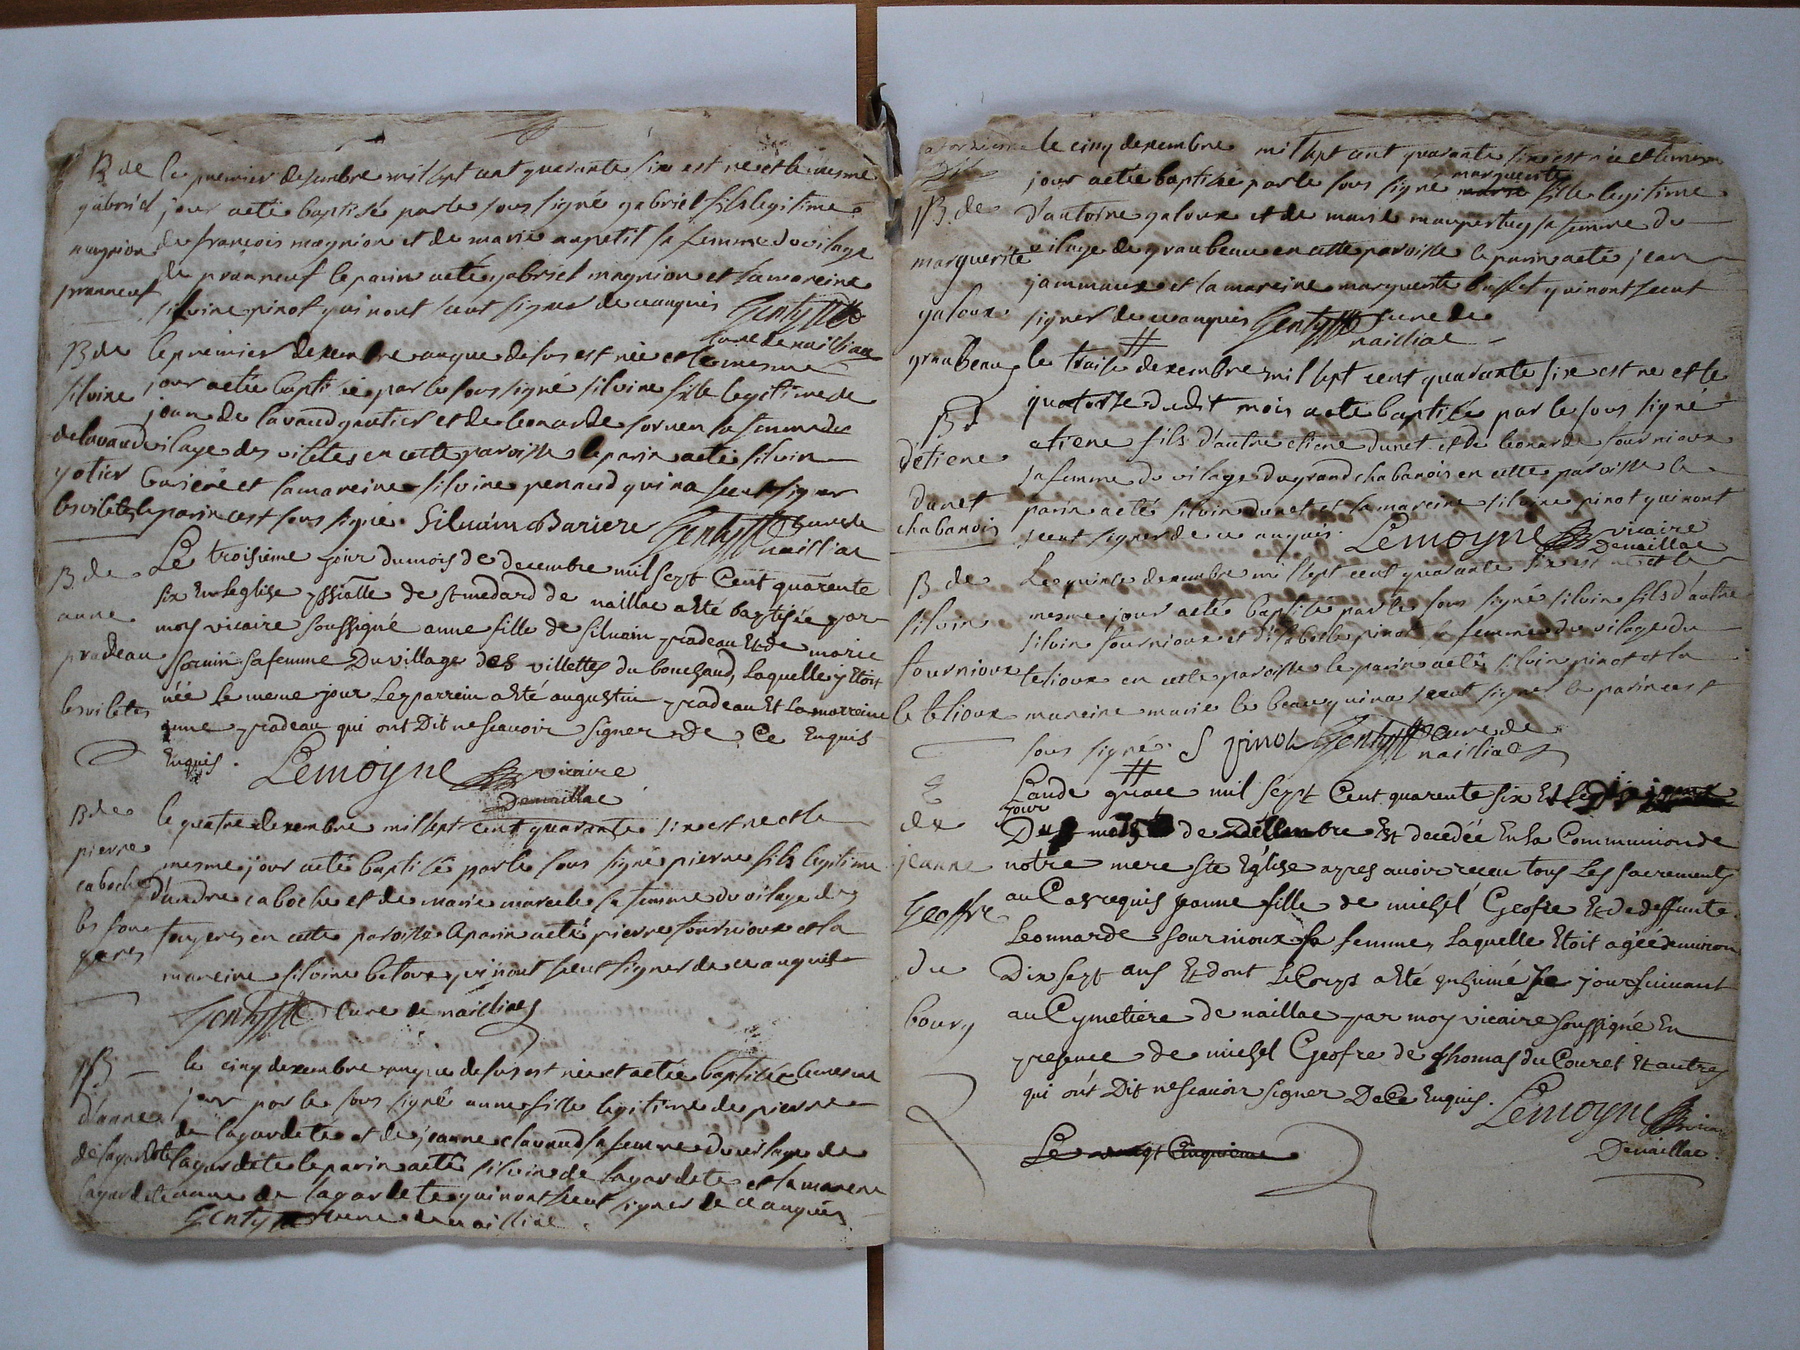 B de
gabriel
magnion
pranneuf
le premier desembre mil sept cent quarante six est ne et le mesme
jour a eté baptisé par le sous signé gabriel fils legitime
de françois magnion et de marie aupetit sa femme du vilage
de pranneuf le parin a eté gabriel magnion et la mareine
silvine pinot qui nont seut signer de ce anquis Gentyffte
curé de nailliac
B de
silvine
delavaud
yotier
les viletes
le premier desembre anque desus est née et le mesme
jour a etée baptisée par le sous signé silvine fille legitime de
jean de lavaud yautier et de leonarde fornen sa femme du
vilage des viletes en cette paroisse le parin a eté silvin
bariere et la mareine silvine penaud qui na seut signer
le parin cest sous signé. Silvain Bariere Gentyffte cure de
nailliac
B. de
anne
pradeau
les viletes
Le troisieme jour du mois de decembre mil sept Cent quarente
six En leglise pssialle de st medard de naillac a Eté baptisée par
moy vicaire soussigné anne fille de silvain pradeau Et de marie
sornin sa femme Du village des villettes du bouchaud, Laquelle y Etoit
née Le meme jour Les parrein a Eté augustin pradeau Et La marreine
anne pradeau qui ont Dit ne scauoir signer de Ce Enquis
Enquis. Lemoyne vicaire
Denaillac
B de
pierre
caboche
les fou
geres
le quatre desembre mil sept cent quarante six est ne et le
mesme jour a eté baptisé par le sous signé pierre fils legitime
d'andre caboche et de marie marcele sa femme du vilage des
fougeres en cette paroisse le parin a eté pierre fournioux et la
mareine silvine betoux qui nont seut signer de ce anquis
Gentyffte Cure de nailliac
B
d'anne
de lagardete
lagardete
le cinq desembre anque desus est née et a etée baptisée le mesme
jour par le sous signé anne fille legitime de pierre
de lagardete et de jeanne clavaud sa femme du vilage de
lagardete le parin a eté silvin de lagardete et la marene
anne de lagardete qui nont seut signer de ce anquis
Gentyffte cure de nailliac
B. de
marguerite
galoux
graubeau
le cinq desembre mil sept cent quarante six est née et le mesme
jour a etée baptisée par le sous signé marie marguerite fille legitime
d'antoine galoux et de marie maupertuy sa femme du
vilage de graubeau en cette paroisse le parin a eté jean
jammaux et la mareine marguerite buffet qui nont seut
signer de ce anquis Gentyffte cure de
nailliac
B
d'etiene
dunet
chabanois
le traise desembre mil sept cent quarante six est ne et le
quatorse dudit mois a eté baptisé par le sous signé
etiene fils d'autre etiene dunet et de leonarde fournioux
sa femme du vilage du grand chabanois en cette paroisse le
parin a eté silvin dunet et la mareine silvine pinot qui nont
seut signer de ce anquis. Lemoyne vicaire
Denaillac
B de
silvin
fournioux
le telioux
Le quinse desembre mil sept cent quarante six est ne et le
mesme jour a eté baptisé par le sous signé silvin fils d'autre
silvin fournioux et d'isabelle pinot sa femme du vilage du
telioux en cette paroisse le parin a eté silvin pinot et la
mareine marie le beau qui na seut signer le parin cest
sous signé. S pinot Gentyffte cure de
nailliac
E
de
jeanne
Geoffre
du
bourg
Lan de grace mil sept Cent quarente six Et le
jour
Du mois de Décembre Est decedée En la Communion de
notre mere ste Eglise apres auoir receu tous Les sacrements
au Cas requis jeanne fille de michel Geofre Et de deffunte
Leonnarde fournioux sa femme, Laquelle Etoit agée denuiron
Dix sept ans Et dont Le Corps a Eté inhumé Le jour suiuant
au Cymetiere de naillac par moy vicaire soussigné En
presence de michel Geofre de thomas du Couret Et autres
qui ont Dit ne scauoir signer De Ce Enquis. Lemoyne vicaire
Denaillac.
Le vingt Cinquieme